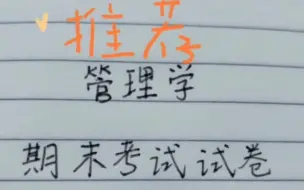 推荐
管理学
期末考试试卷